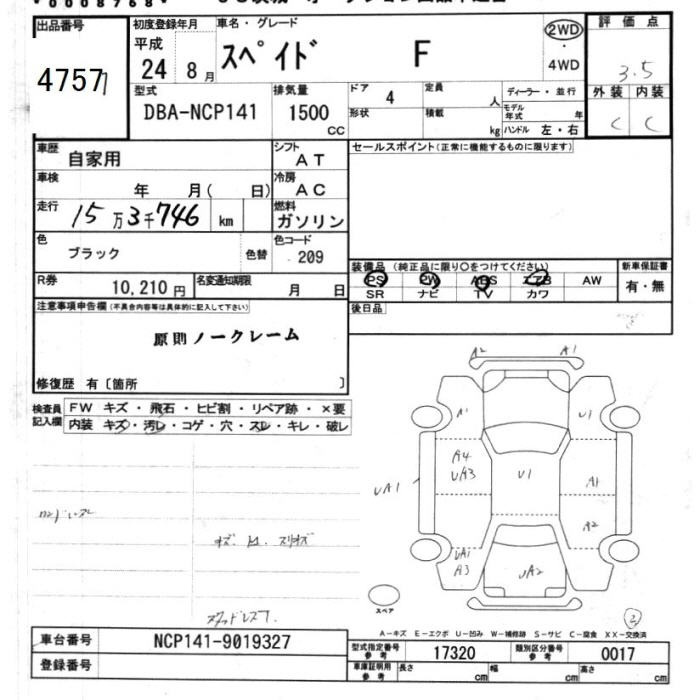 0008768
出品番号 初度登録年月 車名・グレード 2WD 評価点
平成 スペイド F
4757 24 8月 4WD 3.5
型式 排気量 ドア 4 定員 人 ディーラー・並行 外装 内装
DBA-NCP141 1500 CC 形状 積載 kg モデル年式 年 C C
ハンドル 左・右
車歴 自家用 シフト AT セールスポイント(正常に機能するものに限ります)
車検 年 月( 日) 冷房 AC
走行 15万3千746 km 燃料 ガソリン
色 ブラック 色替 色コード 209
装備品 (純正品に限り○をつけてください) 新車保証書
R券 10,210円 名変通知期限 月 日 PS PW ABS エアB AW 有・無
SR ナビ TV カワ
注意事項申告欄(不具合内容等は具体的に記入して下さい) 後日品
原則ノークレーム
修復歴 有〔箇所 〕
検査員記入欄 FW キズ・飛石・ヒビ割・リペア跡・×要
内装 キズ・汚レ・コゲ・穴・スレ・キレ・破レ
A2 A1
A1 U1
A4
UA3 U1 A1
UA1
A2
UA1
A3 UA2
スペア
A-キズ E-エクボ U-凹み W-補修跡 S-サビ C-腐食 XX-交換済
車台番号 NCP141-9019327 型式指定番号参考 17320 類別区分番号参考 0017
登録番号 車庫証明用参考 長さ cm 幅 cm 高さ cm